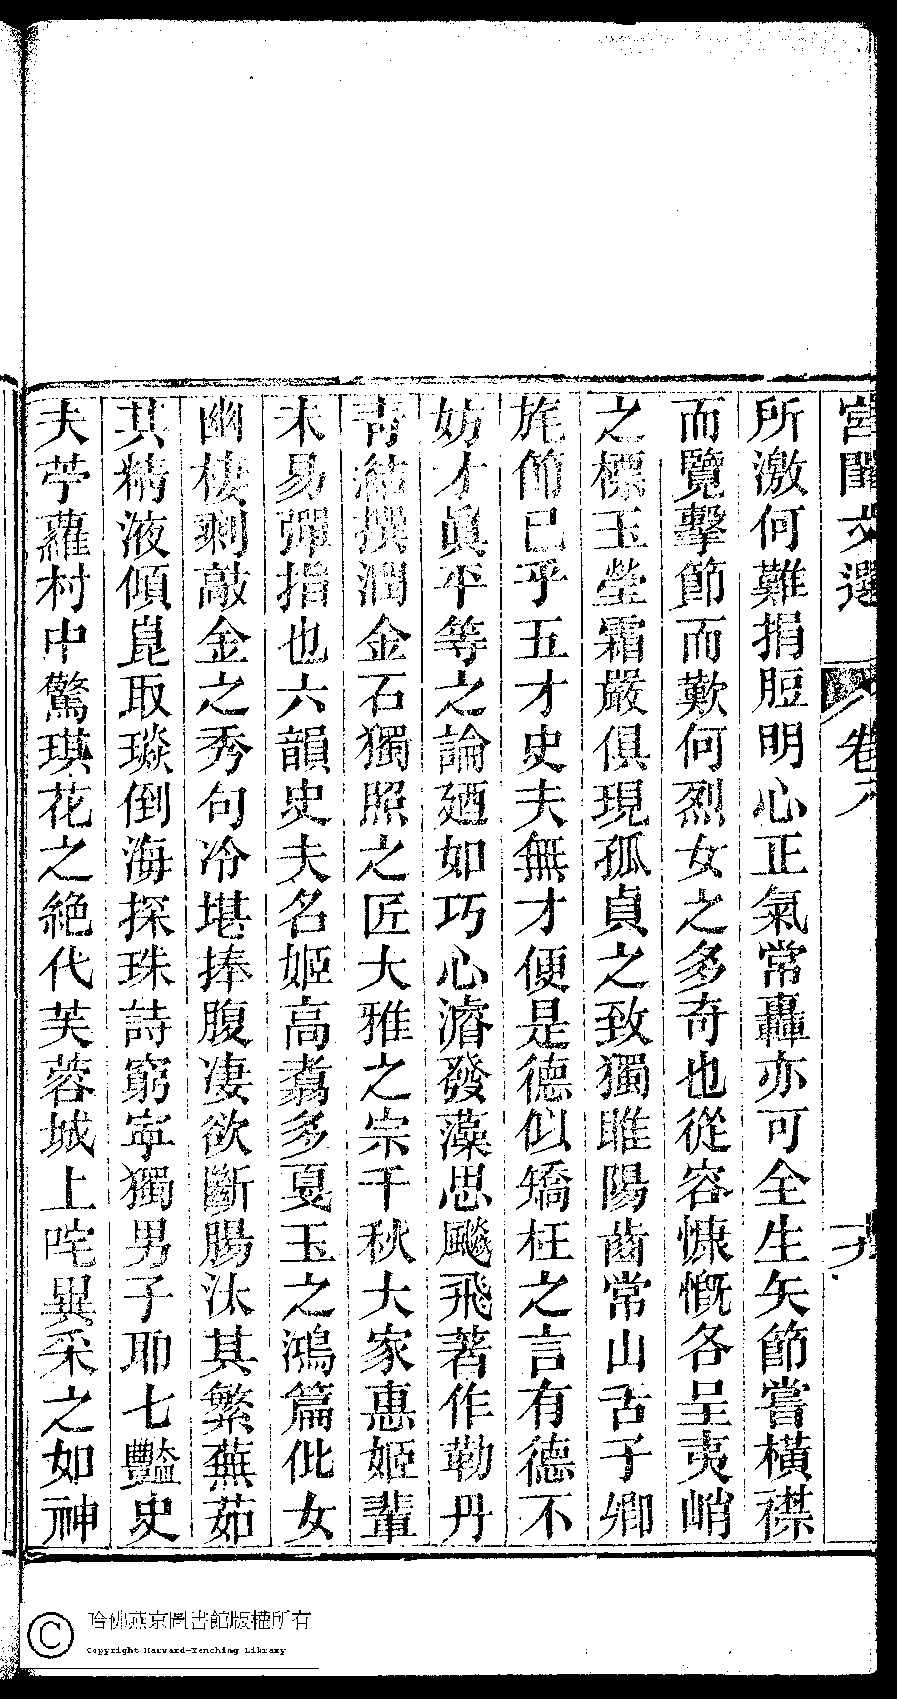 宮閨文選 卷八 十八
所激何難捐脰明心正氣常轟亦可全生矢節嘗橫襟
而覽擊節而歎何烈女之多奇也從容慷慨各呈夷峭
之標玉瑩霜嚴俱現孤貞之致獨睢陽齒常山舌子卿
旄節已乎五才史夫無才便是德似矯枉之言有德不
妨才眞平等之論廼如巧心濬發藻思飈飛著作勒丹
青結撰潤金石獨照之匠大雅之宗千秋大家惠姬輩
未易彈指也六韻史夫名姬高翥多戛玉之鴻篇仳女
幽棲剩敲金之秀句冷堪捧腹凄欲斷腸汰其繁蕪茹
其精液傾崑取琰倒海探珠詩窮寧獨男子耶七豔史
夫苧蘿村中驚琪花之絕代芙蓉城上咤異采之如神
哈佛燕京圖書館版權所有
Copyright Harvard-Yenching Library